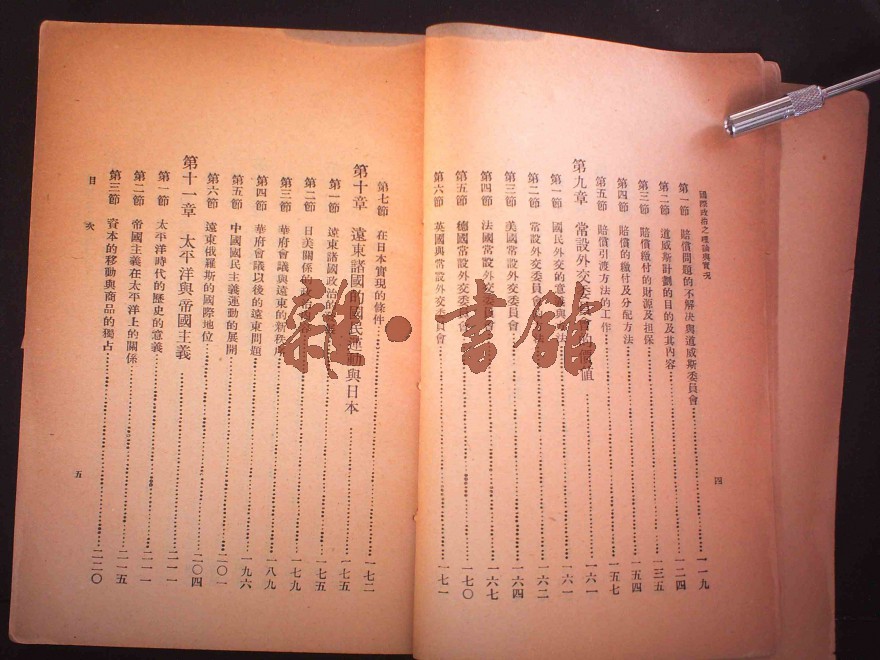 國際政治之理論與實況
第一節 賠償問題的不解決與道威斯委員會……一一九
第二節 道威斯計劃的目的及其內容……一二四
第三節 賠償繳付的財源及担保……一三五
第四節 賠償的繳付及分配方法……一五四
第五節 賠償引渡方法的工作……一五七
第九章 常設外交委員會的價值……一六一
第一節 國民外交的意義與……一六一
第二節 常設外交委員會的方法……一六二
第三節 美國常設外交委員會……一六四
第四節 法國常設外交委員會……一六七
第五節 德國常設外交委員會……一七〇
第六節 英國與常設外交委員會……一七一
四
第七節 在日本實現的條件……一七二
第十章 遠東諸國的國民運動與日本……一七五
第一節 遠東諸國政治的……一七五
第二節 日美關係的……一七九
第三節 華府會議與遠東的新秩序……一八九
第四節 華府會議以後的遠東問題……一九六
第五節 中國國民主義運動的展開……二〇一
第六節 遠東俄羅斯的國際地位……二〇四
第十一章 太平洋與帝國主義……二一一
第一節 太平洋時代的歷史的意義……二一一
第二節 帝國主義在太平洋上的關係……二一五
第三節 資本的移動與商品的獨占……二二〇
目次
五
雜·書館